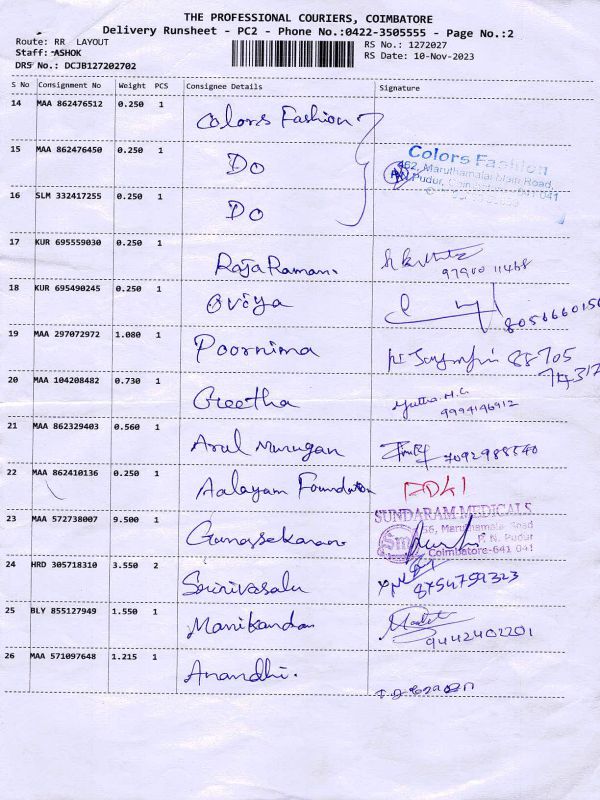 THE PROFESSIONAL COURIERS, COIMBATORE
Delivery Runsheet - PC2 - Phone No.:0422-3505555 - Page No.:2
Route: RR LAYOUT
RS No.: 1272027
Staff: ASHOK
RS Date: 10-Nov-2023
DRS No.: DCJB127202702
S No Consignment No Weight PCS Consignee Details Signature
14 MAA 862476512 0.250 1 Colors Fashion
15 MAA 862476450 0.250 1 Do
Colors Fashion
462, Maruthamalai Main Road,
P.N. Pudur, 641 041
16 SLM 332417255 0.250 1 Do
17 KUR 695559030 0.250 1 RajaRaman.
97900 11468
18 KUR 695490245 0.250 1 Oviya
8056660156
19 MAA 297072972 1.080 1 Poornima 88705
74312
20 MAA 104208482 0.730 1 Geetha
9994196912
21 MAA 862329403 0.560 1 Arul Murugan 7092988540
22 MAA 862410136 0.250 1 Aalayam Foundation
SUNDARAM MEDICALS
23 MAA 572738007 9.500 1 Gunasekaran
56, Maruthamalai Road
P. N. Pudur
Sm Coimbatore-641 041
24 HRD 305718310 3.550 2 Srinivasalu
8754759323
25 BLY 855127949 1.550 1 Manikandan
9442402201
26 MAA 571097648 1.215 1 Anandhi.